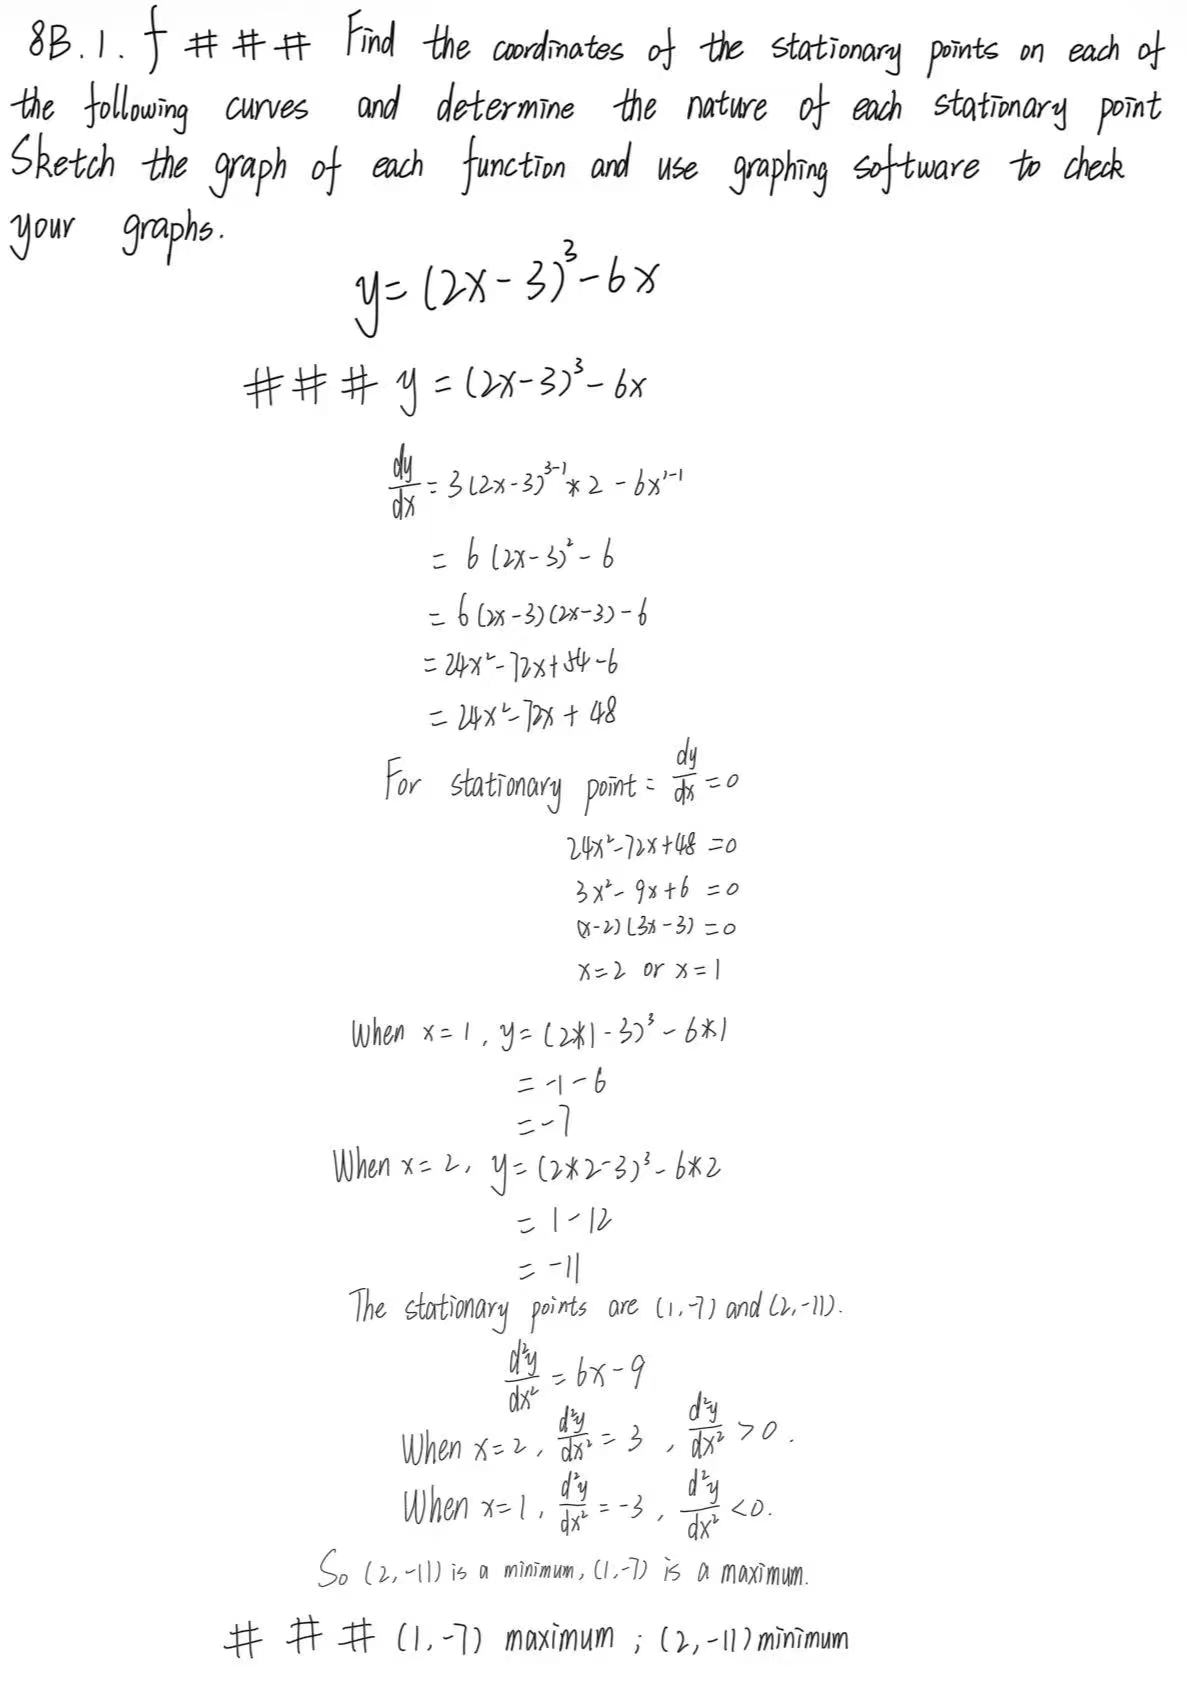 8B.1.f ### Find the coordinates of the stationary points on each of
the following curves and determine the nature of each stationary point
Sketch the graph of each function and use graphing software to check
your graphs.
y=(2x-3)³-6x
### y=(2x-3)³-6x
dy/dx=3(2x-3)³⁻¹*2-6x¹⁻¹
=6(2x-3)²-6
=6(2x-3)(2x-3)-6
=24x²-72x+54-6
=24x²-72x+48
For stationary point: dy/dx=0
24x²-72x+48=0
3x²-9x+6=0
(x-2)(3x-3)=0
x=2 or x=1
When x=1, y=(2*1-3)³-6*1
=-1-6
=-7
When x=2, y=(2*2-3)³-6*2
=1-12
=-11
The stationary points are (1,-7) and (2,-11).
d²y/dx²=6x-9
When x=2, d²y/dx²=3, d²y/dx²>0.
When x=1, d²y/dx²=-3, d²y/dx²<0.
So (2,-11) is a minimum, (1,-7) is a maximum.
### (1,-7) maximum; (2,-11) minimum